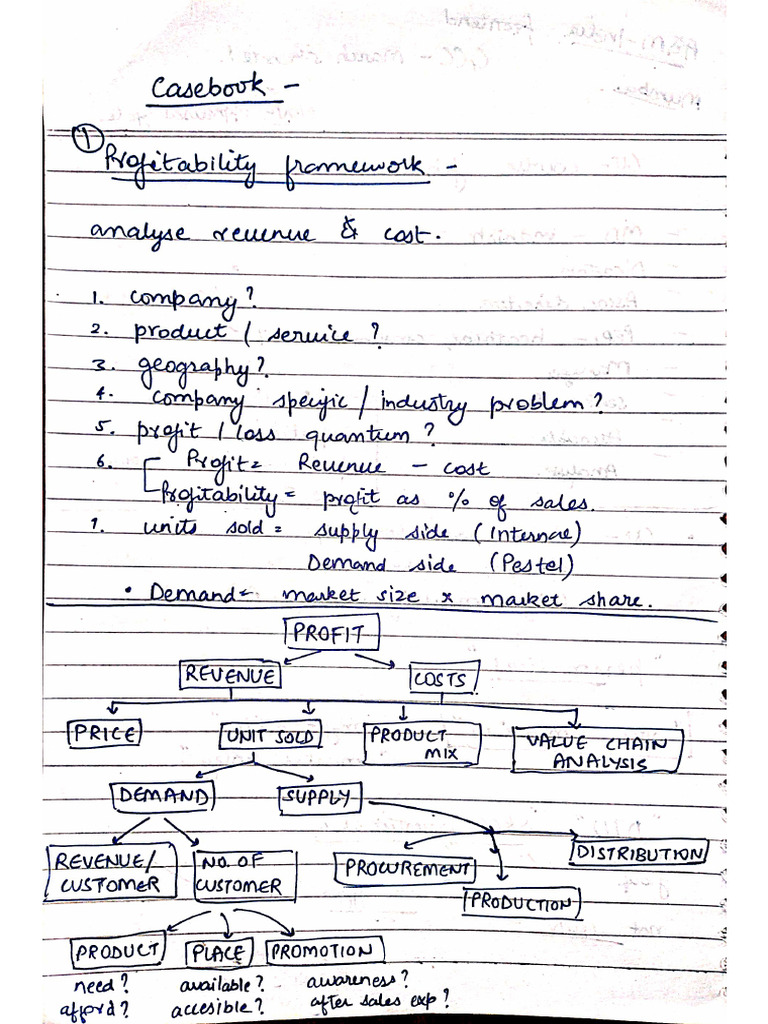 Casebook -
① Profitability framework -
analyse revenue & cost.
1. company?
2. product / service?
3. geography?
4. company specific / industry problem?
5. profit / loss quantum?
6. Profit = Revenue - cost
Profitability = profit as % of sales.
1. units sold = supply side (Internal)
Demand side (Pestel)
• Demand = market size x market share.
PROFIT
REVENUE COSTS
PRICE UNIT SOLD PRODUCT MIX VALUE CHAIN ANALYSIS
DEMAND SUPPLY
REVENUE/ CUSTOMER NO. OF CUSTOMER PROCUREMENT DISTRIBUTION
PRODUCTION
PRODUCT PLACE PROMOTION
need? available? awareness?
afford? accesible? after sales exp?